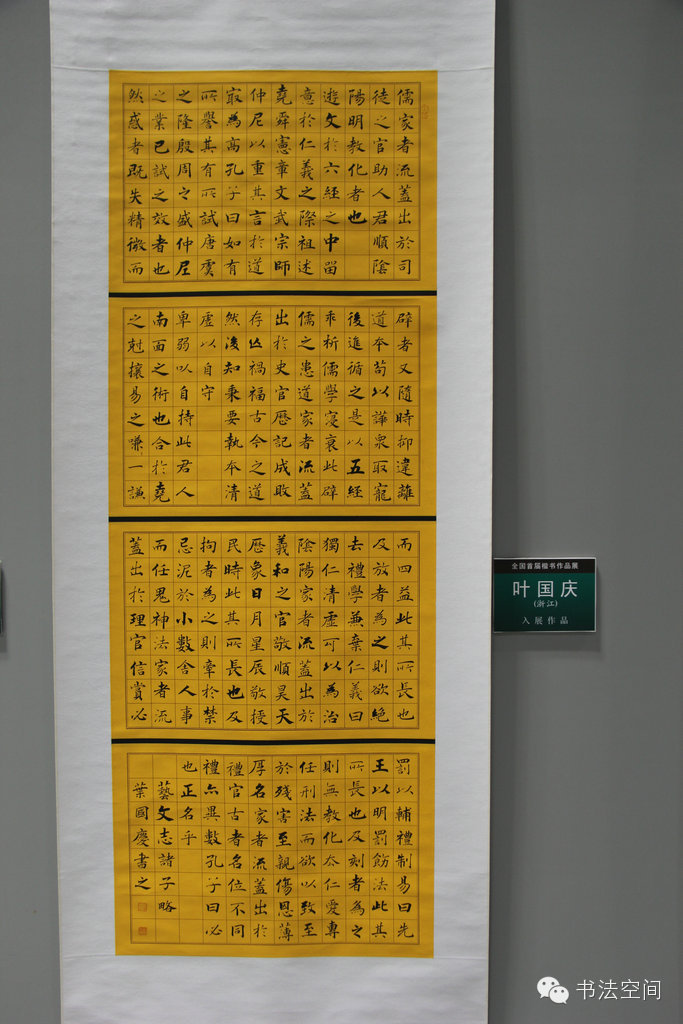 儒家者流蓋出於司
徒之官助人君順陰
陽明教化者也
遊文於六經之中留
意於仁義之際祖述
堯舜憲章文武宗師
仲尼以重其言於道
最為高孔子曰如有
所譽其有所試唐虞
之隆殷周之盛仲尼
之業已試之效者也
然惑者既失精微而
辟者又隨時抑違離
道本苟以譁衆取寵
後進循之是以五經
乖析儒學寖衰此辟
儒之患道家者流蓋
出於史官歷記成敗
存亡禍福古今之道
然後知秉要執本清
虛以自守
卑弱以自持此君人
南面之術也合於堯
之尅攘易之嗛一謙
而四益此其所長也
及放者為之則欲絕
去禮學兼棄仁義曰
獨仁清虛可以為治
陰陽家者流蓋出於
義和之官敬順昊天
歷象日月星辰敬授
民時此其所長也及
拘者為之則牽於禁
忌泥於小數舍人事
而任鬼神法家者流
蓋出於理官信賞必
罰以輔禮制易曰先
王以明罰飭法此其
所長也及刻者為之
則無教化去仁愛專
任刑法而欲以致至
於殘害至親傷恩薄
厚名家者流蓋出於
禮官古者名位不同
禮亦異數孔子曰必
也正名乎
藝文志諸子略
葉國慶書之
全国首届楷书作品展
叶国庆
(浙江)
入展作品
书法空间